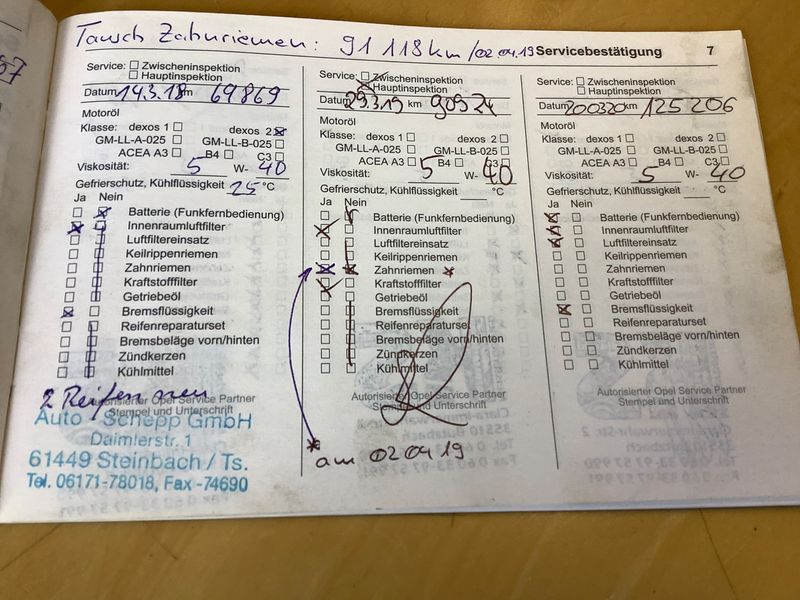 Tausch Zahnriemen: 91 118 km / 02.04.19 Servicebestätigung 7
Service: Zwischeninspektion
Hauptinspektion
Datum 14.3.18 km 69869
Motoröl
Klasse: dexos 1 dexos 2
GM-LL-A-025 GM-LL-B-025
ACEA A3 B4 C3
Viskosität: 5 W- 40
Gefrierschutz, Kühlflüssigkeit 25 °C
Ja Nein
Batterie (Funkfernbedienung)
Innenraumluftfilter
Luftfiltereinsatz
Keilrippenriemen
Zahnriemen
Kraftstofffilter
Getriebeöl
Bremsflüssigkeit
Reifenreparaturset
Bremsbeläge vorn/hinten
Zündkerzen
Kühlmittel
2 Reifen neu
Autorisierter Opel Service Partner
Stempel und Unterschrift
Auto - Schepp GmbH
Daimlerstr. 1
61449 Steinbach / Ts.
Tel. 06171-78018, Fax -74690
Service: Zwischeninspektion
Hauptinspektion
Datum 29.3.19 km 90924
Motoröl
Klasse: dexos 1 dexos 2
GM-LL-A-025 GM-LL-B-025
ACEA A3 B4 C3
Viskosität: 5 W- 40
Gefrierschutz, Kühlflüssigkeit °C
Ja Nein
Batterie (Funkfernbedienung)
Innenraumluftfilter
Luftfiltereinsatz
Keilrippenriemen
Zahnriemen *
Kraftstofffilter
Getriebeöl
Bremsflüssigkeit
Reifenreparaturset
Bremsbeläge vorn/hinten
Zündkerzen
Kühlmittel
Autorisierter Opel Service Partner
Stempel und Unterschrift
* am 02 04 19
Service: Zwischeninspektion
Hauptinspektion
Datum 200320 km 125206
Motoröl
Klasse: dexos 1 dexos 2
GM-LL-A-025 GM-LL-B-025
ACEA A3 B4 C3
Viskosität: 5 W- 40
Gefrierschutz, Kühlflüssigkeit °C
Ja Nein
Batterie (Funkfernbedienung)
Innenraumluftfilter
Luftfiltereinsatz
Keilrippenriemen
Zahnriemen
Kraftstofffilter
Getriebeöl
Bremsflüssigkeit
Reifenreparaturset
Bremsbeläge vorn/hinten
Zündkerzen
Kühlmittel
Autorisierter Opel Service Partner
Stempel und Unterschrift